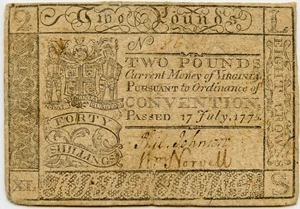 Two Pounds
No
TWO POUNDS
Current Money of VIRGINIA
PURSUANT to Ordinance of
CONVENTION,
PASSED 17 July, 1775.
FORTY
SHILLINGS
Johnson
Wm Norvell
XL